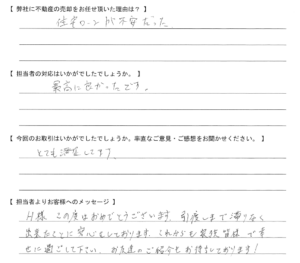 【 弊社に不動産の売却をお任せ頂いた理由は？ 】
住宅ローンが不安だった
【 担当者の対応はいかがでしたでしょうか。 】
最高に良かったです。
【 今回のお取引はいかがでしたでしょうか。率直なご意見・ご感想をお聞かせください。 】
とても満足してます。
【 担当者よりお客様へのメッセージ 】
H様 この度はおめでとうございます。引渡しまで滞りなく
出来たことに安心をしております。これからも家族皆様で幸
せに過ごして下さい。お友達のご紹介もお待ちしております！